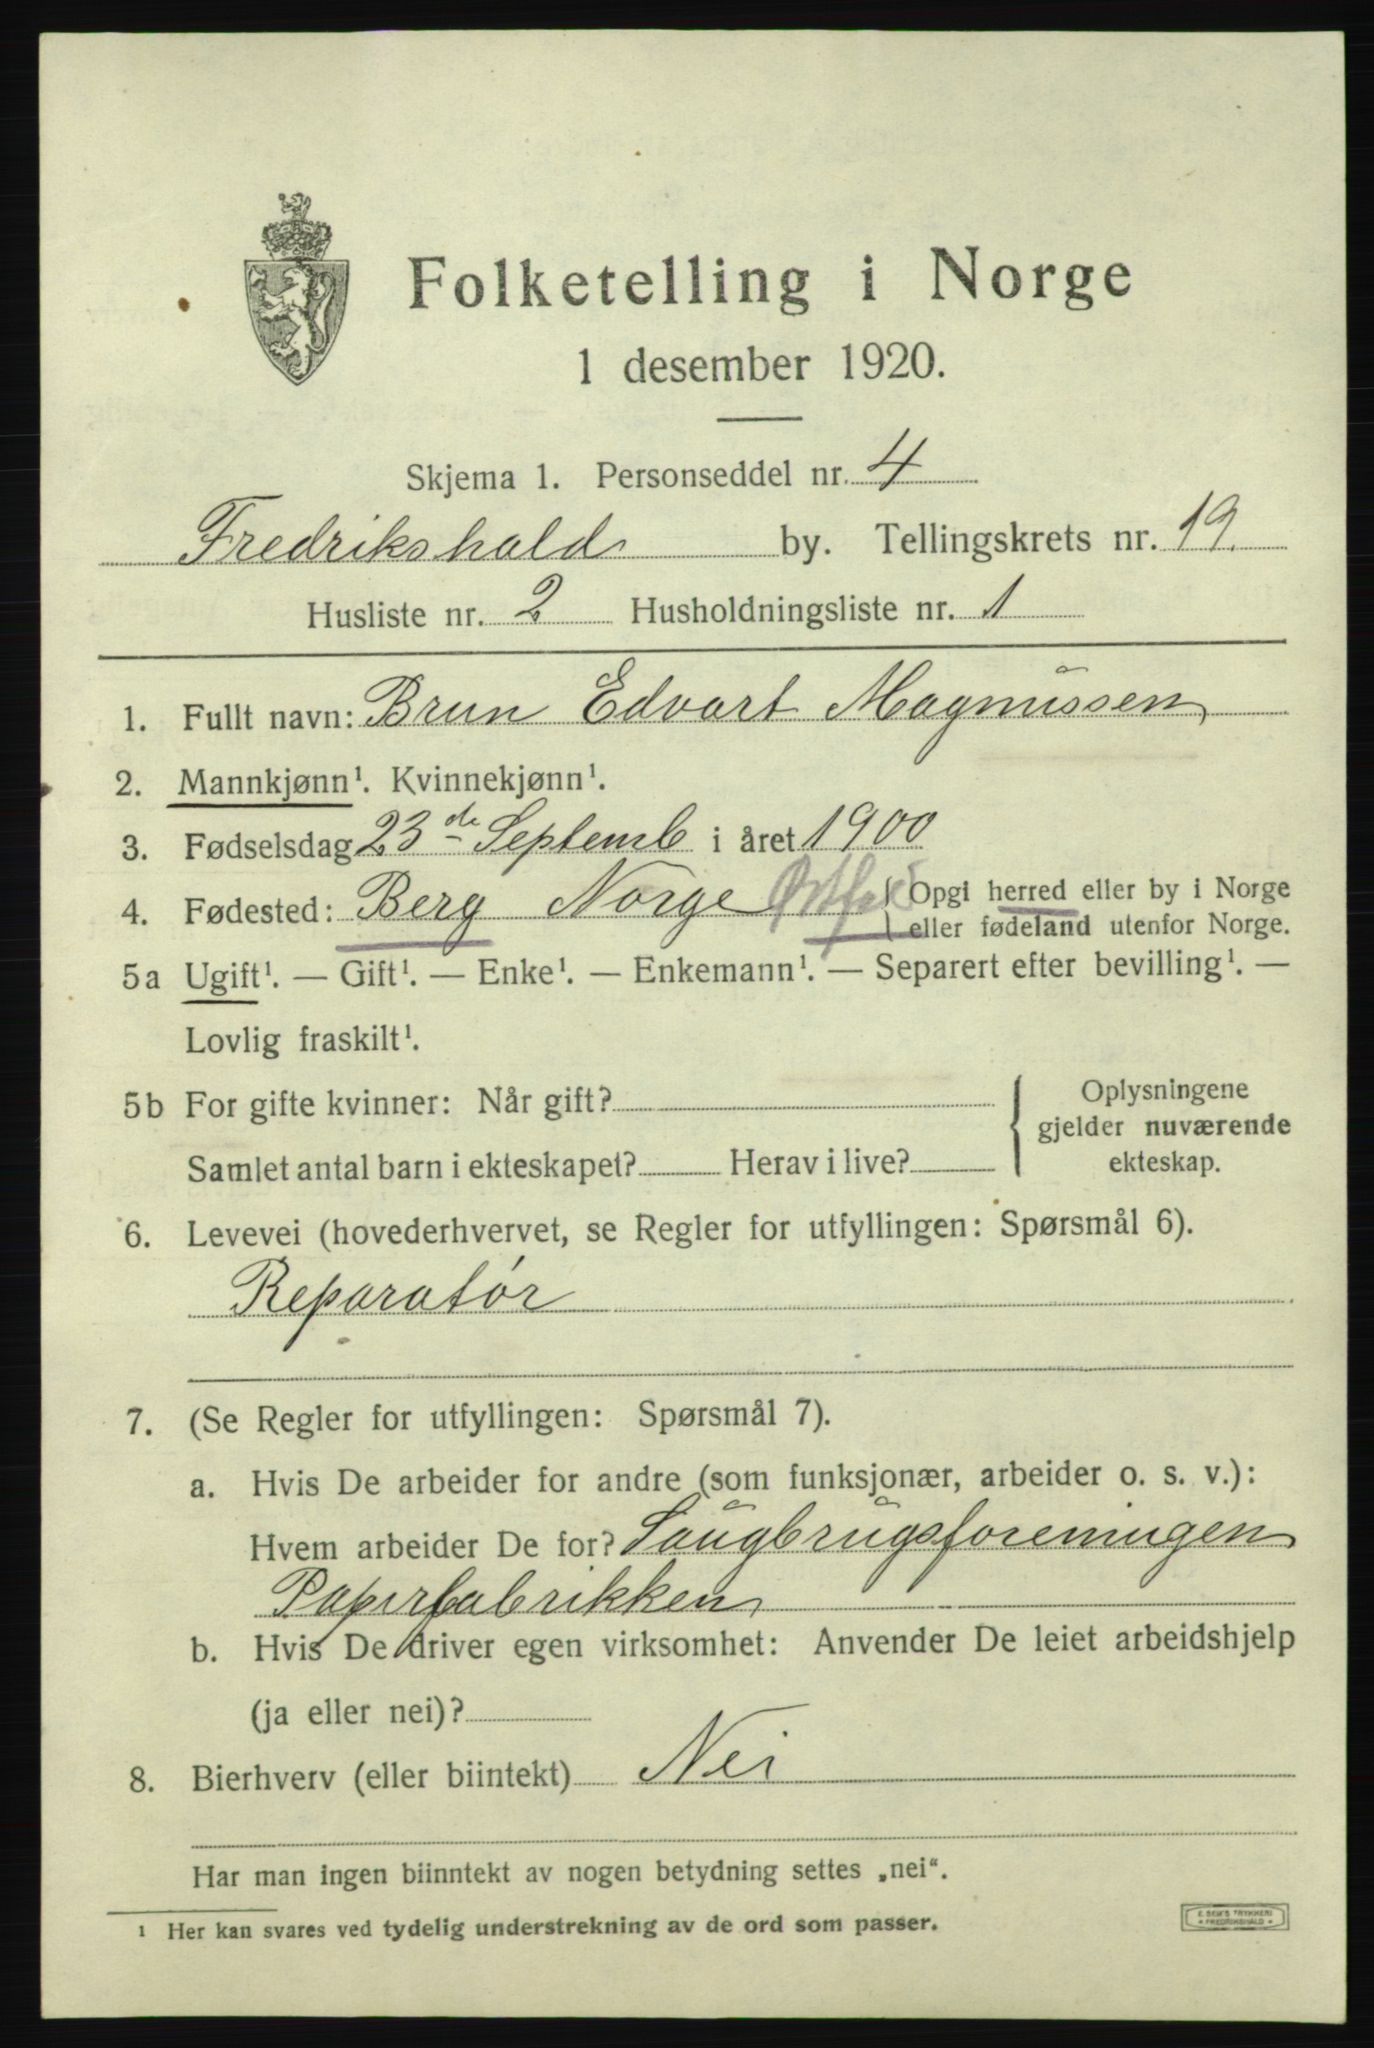 Folketelling i Norge
1 desember 1920.
Skjema 1. Personseddel nr. 4
Fredrikshald by. Tellingskrets nr. 19.
Husliste nr. 2 Husholdningsliste nr. 1
1. Fullt navn: Brun Edvart Magnussen
2. Mannkjønn¹. Kvinnekjønn¹.
3. Fødselsdag 23de Septemb i året 1900
4. Fødested: Berg Norge Østfold { Opgi herred eller by i Norge
eller fødeland utenfor Norge.
5a Ugift¹. — Gift¹. — Enke¹. — Enkemann¹. — Separert efter bevilling¹. —
Lovlig fraskilt¹.
5b For gifte kvinner: Når gift?
Samlet antal barn i ekteskapet? Herav i live?
Oplysningene
gjelder nuværende
ekteskap.
6. Levevei (hovederhvervet, se Regler for utfyllingen: Spørsmål 6).
Reparatør
7. (Se Regler for utfyllingen: Spørsmål 7).
a. Hvis De arbeider for andre (som funksjonær, arbeider o. s. v.):
Hvem arbeider De for? Saugbrugsforeningen
Papirfabrikken
b. Hvis De driver egen virksomhet: Anvender De leiet arbeidshjelp
(ja eller nei)?
8. Bierhverv (eller biintekt) Nei
Har man ingen biinntekt av nogen betydning settes „nei“.
¹ Her kan svares ved tydelig understrekning av de ord som passer.
E. SEM'S TRYKKERI
FREDRIKSHALD